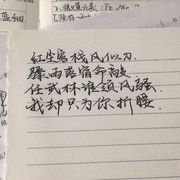 红尘客栈风似刀.
骤雨落宿命敲
任武林谁领风骚
我却只为你折腰.